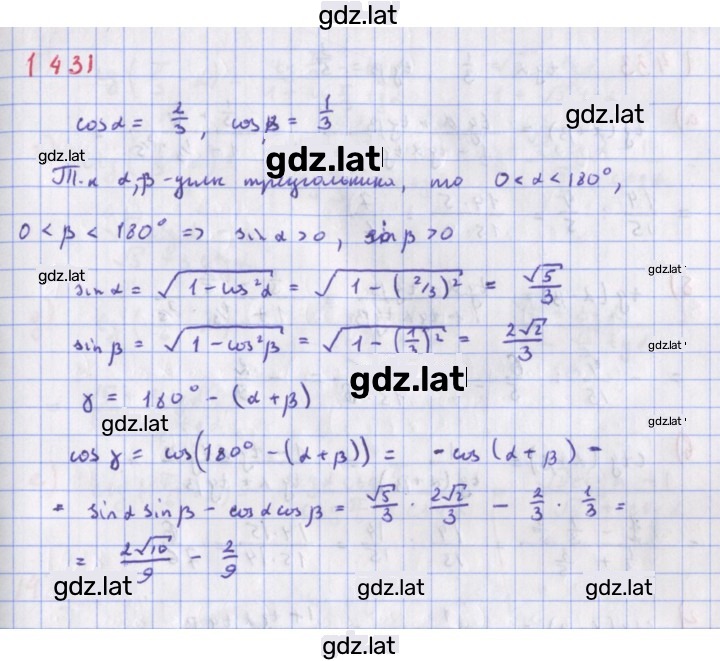 gdz.lat
1431
cos α = 2/3, cos β = 1/3
gdz.lat
gdz.lat
gdz.lat
Т.к α,β - углы треугольника, то 0 < α < 180°,
0 < β < 180° => sin α > 0, sin β > 0
gdz.lat
gdz.lat
sin α = √(1 - cos²α) = √(1 - (2/3)²) = √5/3
sin β = √(1 - cos²β) = √(1 - (1/3)²) = 2√2/3
gdz.lat
gdz.lat
γ = 180° - (α + β)
gdz.lat
gdz.lat
cos γ = cos(180° - (α + β)) = - cos (α + β) =
= sin α sin β - cos α cos β = √5/3 · 2√2/3 - 2/3 · 1/3 =
= 2√10/9 - 2/9
gdz.lat
gdz.lat
gdz.lat
gdz.lat